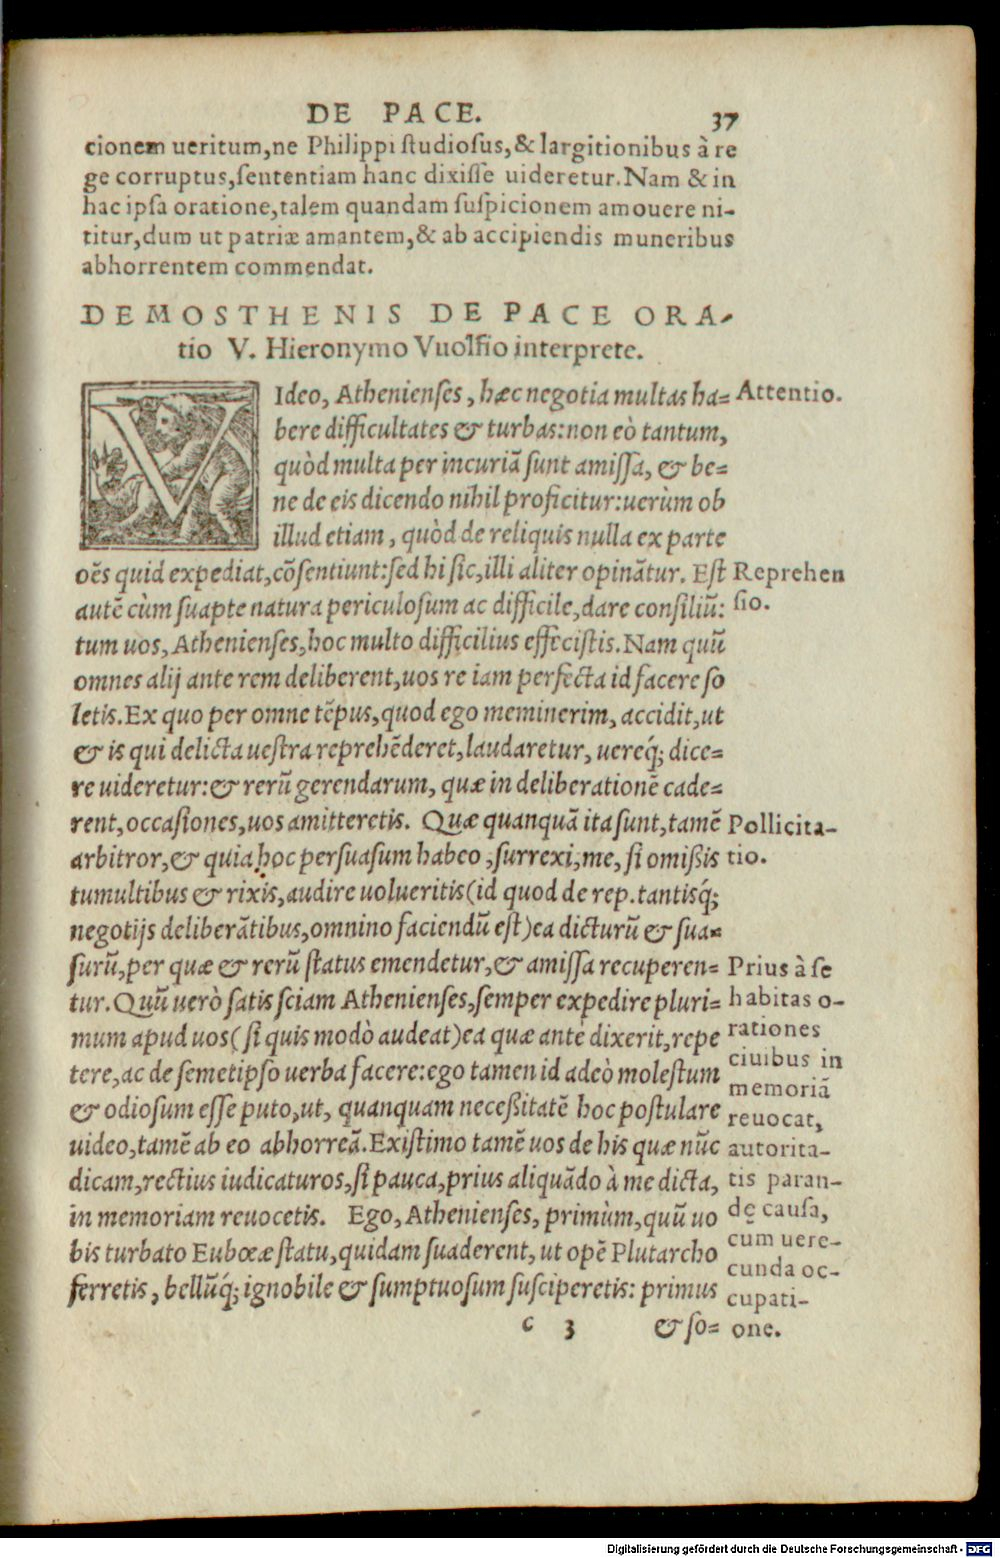 DE PACE. 37
cionem ueritum,ne Philippi studiosus,& largitionibus à re
ge corruptus,sententiam hanc dixisse uideretur.Nam & in
hac ipsa oratione,talem quandam suspicionem amouere ni-
titur,dum ut patriæ amantem,& ab accipiendis muneribus
abhorrentem commendat.
DEMOSTHENIS DE PACE ORA-
tio V. Hieronymo Vuolfio interprete.
VIdeo, Athenienses, hæc negotia multas ha=
bere difficultates & turbas: non eò tantum,
quòd multa per incuriã sunt amissa, & be=
ne de eis dicendo nihil proficitur: uerùm ob
illud etiam, quòd de reliquis nulla ex parte
oẽs quid expediat,cõsentiunt: sed hi sic,illi aliter opinãtur. Est
autẽ cùm suapte natura periculosum ac difficile,dare consiliũ:
tum uos, Athenienses,hoc multo difficilius effecistis. Nam quũ
omnes alij ante rem deliberent,uos re iam perfecta id facere so
letis. Ex quo per omne tẽpus,quod ego meminerim, accidit,ut
& is qui delicta uestra reprehẽderet,laudaretur, uereq́; dice=
re uideretur: & rerũ gerendarum, quæ in deliberationẽ cade=
rent,occasiones,uos amitteretis. Quæ quanquã ita sunt,tamẽ
arbitror,& quia hoc persuasum habeo ,surrexi,me, si omißis
tumultibus & rixis,audire uolueritis(id quod de rep. tantisq́;
negotijs deliberãtibus,omnino faciendũ est)ea dicturũ & sua=
surũ,per quæ & rerũ status emendetur,& amissa recuperen=
tur. Quũ uerò satis sciam Athenienses,semper expedire pluri=
mum apud uos( si quis modò audeat)ea quæ antè dixerit,repe
tere,ac de semetipso uerba facere: ego tamen id adeò molestum
& odiosum esse puto,ut, quanquam necessitatẽ hoc postulare
uideo,tamẽ ab eo abhorreã. Existimo tamẽ uos de his quæ nũc
dicam,rectius iudicaturos,si pauca,prius aliquãdo à me dicta,
in memoriam reuocetis. Ego, Athenienses, primùm,quũ uo
bis turbato Eubœæ statu,quidam suaderent, ut opẽ Plutarcho
ferretis, bellũq́; ignobile & sumptuosum susciperetis: primus
c 3 & so=
Attentio.
Reprehen
sio.
Pollicita-
tio.
Prius à se
habitas o-
rationes
ciuibus in
memoriã
reuocat,
autorita-
tis paran-
dę causa,
cum uere-
cunda oc-
cupati-
one.
Digitalisierung gefördert durch die Deutsche Forschungsgemeinschaft - DFG